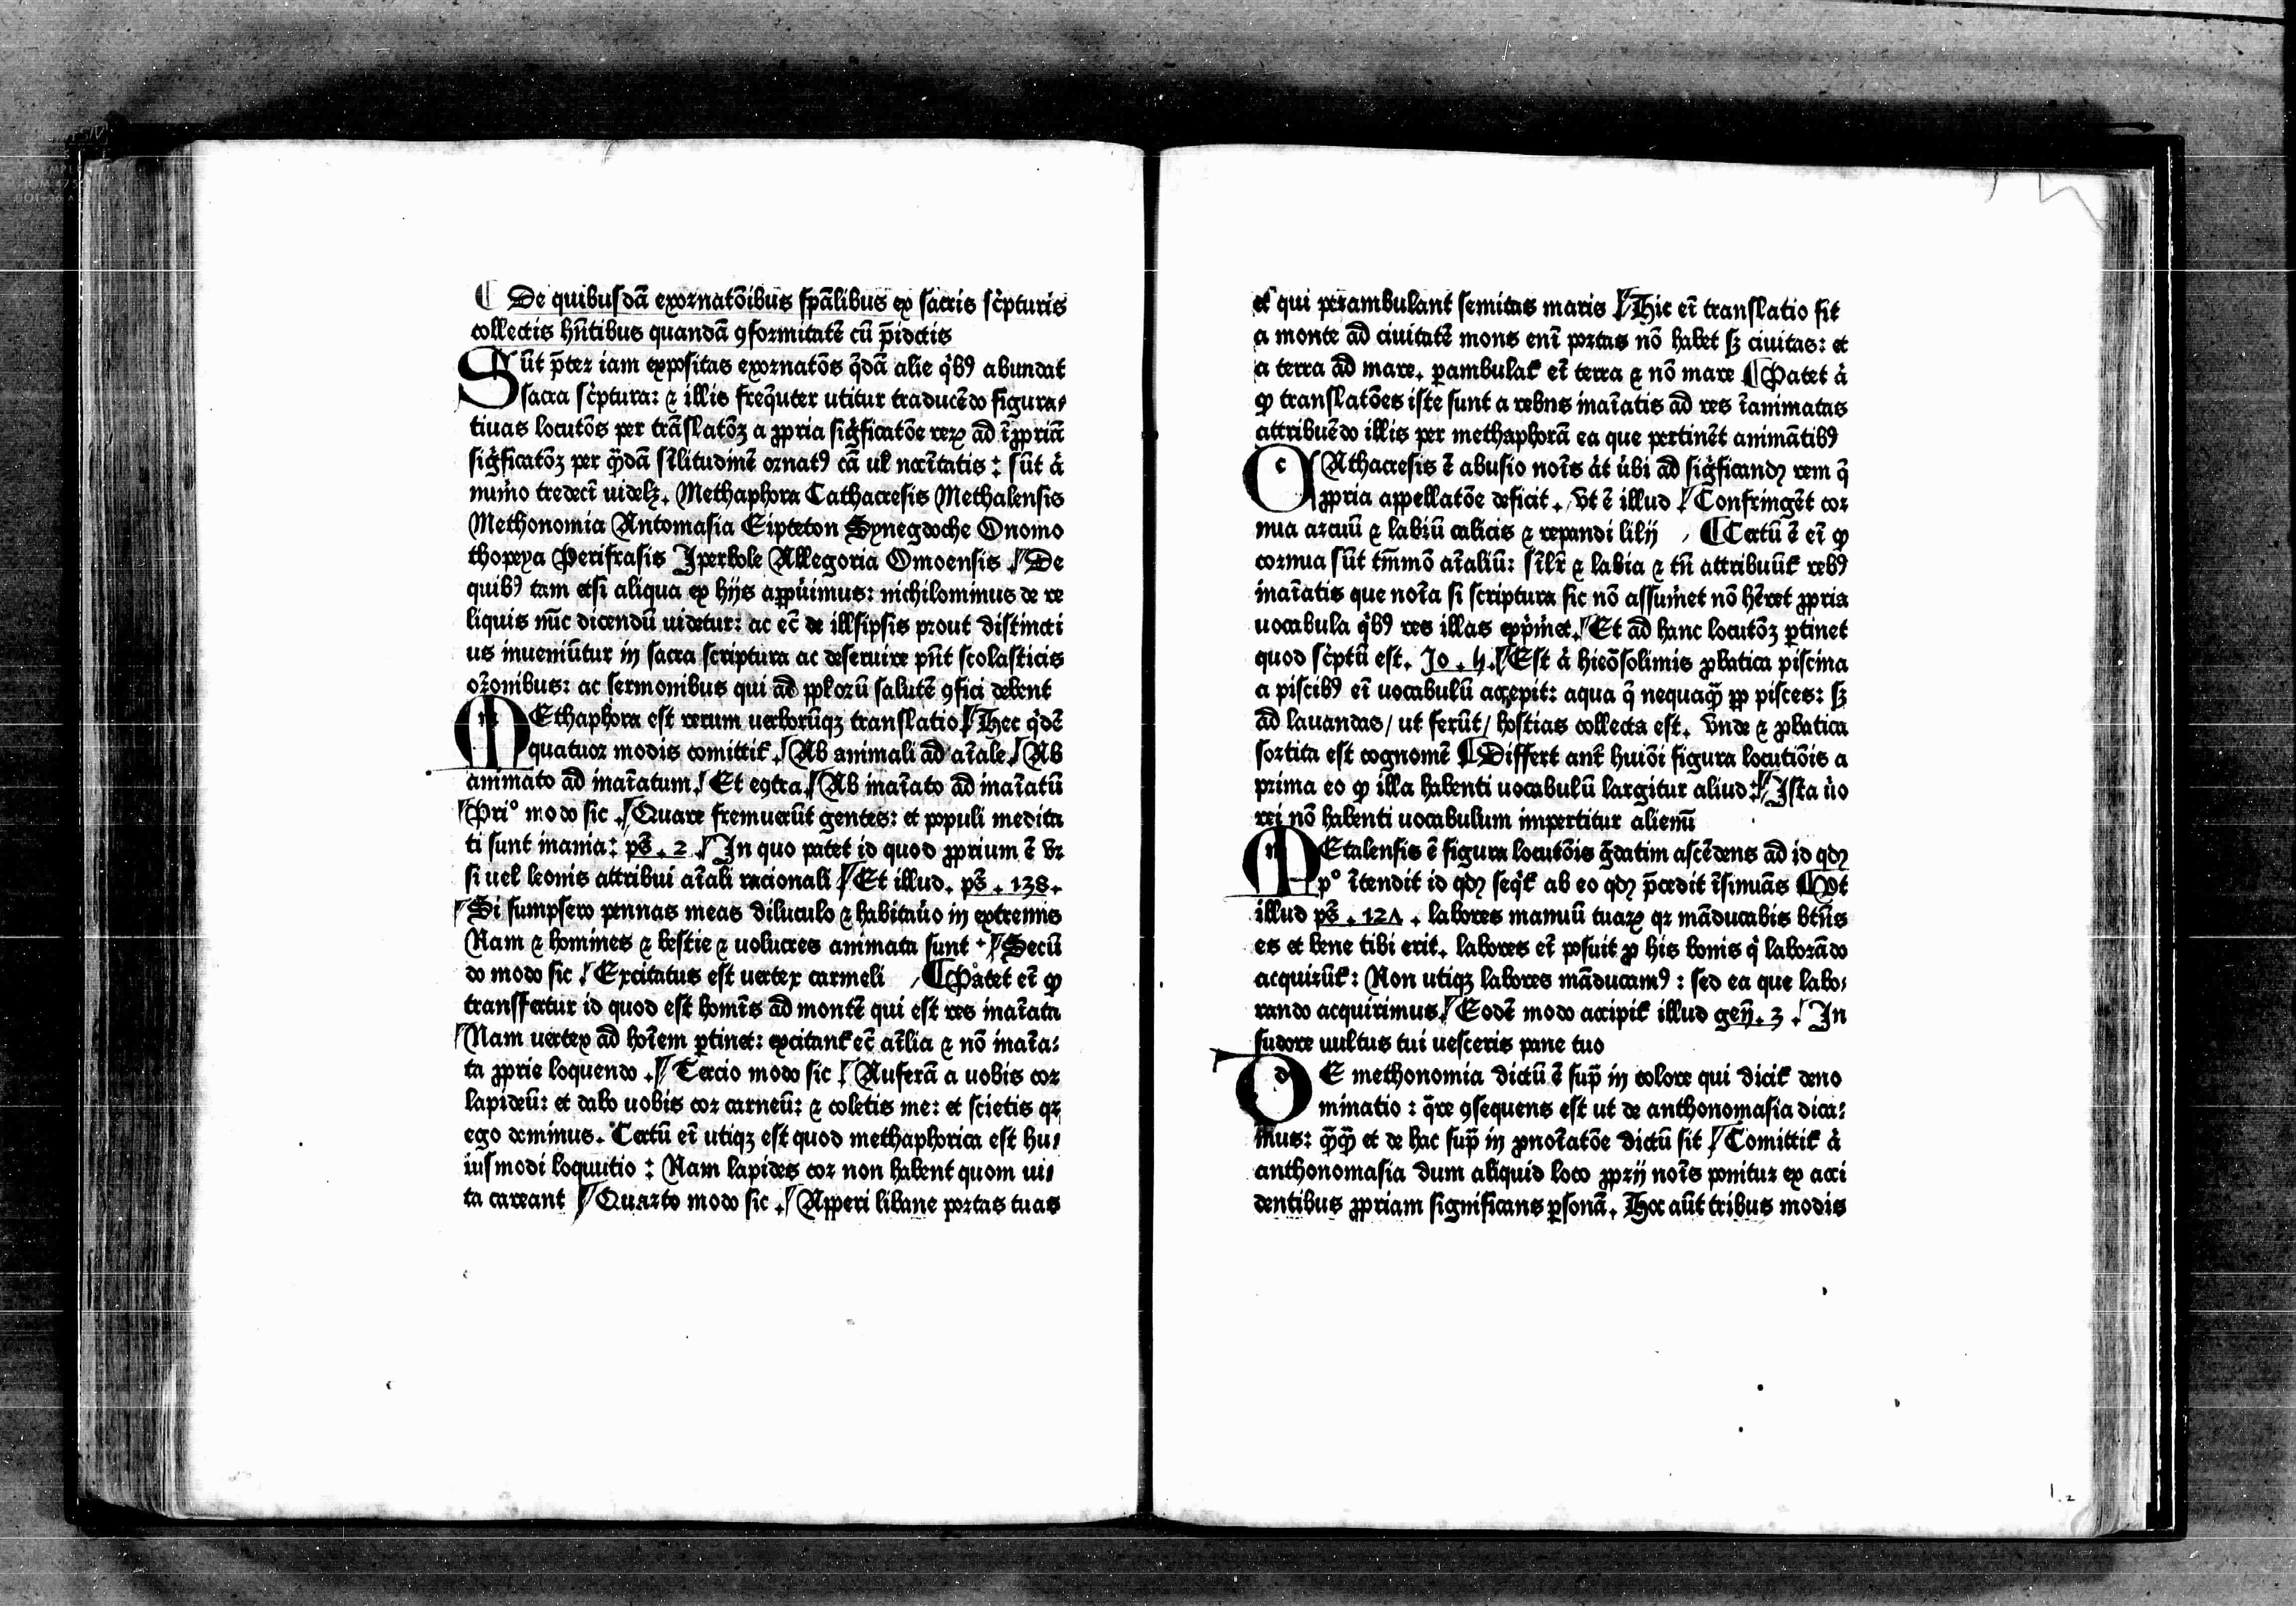 ¶ De quibusdā exornatōibus spālibus ex sacris sc̄pturis
collectis hn̄tibus quandā ꝯformitatē cū p̄idictis
Sūt p̄ter iam expositas exornatōs q̄dā alie qⁱbꝰ abundat
sacra sc̄ptura: ⁊ illis freq̄nter utitur traducēdo figura⸗
tiuas locutōs per trāslatōꝫ a ꝓpria siḡficatōe reꝝ ad īꝓpriā
siḡficatōꝫ per q̄dā sīlitudinē ornatꝰ cā uł nc̄c̄itatis: sūt ā
num̄o tredecī uidelꝫ. Methaphora Cathacresis Methalensis
Methonomia Antomasia Eipteton Synegdoche Onomo
thopeya Perifrasis Iperbole Allegoria Omoensis / De
quibꝰ tam etsi aliqua ex hijs apꝓūimus: nichilominus de re
liquis nūc dicendū uidetur: ac ec̄ de illsipsis prout distincti
us inueniūtur in sacra scriptura ac deseruire pn̄t scolasticis
oꝛ̄onibus: ac sermonibus qui ad ppłorū salutē ꝯfici debent
MEthaphora est rerum uerborūqꝫ translatio / Hec qⁱdē
quatuor modis comittit̄. / Ab animali ad aīale / Ab
animato ad inaīatum / Et eꝯtra / Ab inaīato ad inaīatū
/ Pri° modo sic . / Quare fremuerūt gentes: et populi medita
ti sunt inania: ps̄ . 2 . / In quo patet id quod ꝓprium ē vr
si uel leonis attribui aīali racionali / Et illud. ps̄ . 138.
/ Si sumpsero pennas meas diluculo ⁊ habitaūo in extremis
Nam ⁊ homines ⁊ bestie ⁊ uolucres animata sunt . / Secū
do modo sic / Excitatus est uertex carmeli / ¶ Patet eī ꝙ
transffertur id quod est homīs ad montē qui est res inaīata
/ Nam uertex ad hoīem ꝑtinet: excitant̄ ec̄ aīlia ⁊ nō inaīa⸗
ta ꝓprie loquendo . / Tercio modo sic / Auferā a uobis cor
lapideū: et dabo uobis cor carneū: ⁊ coletis me: et scietis qꝛ
ego dominus. Certū eī utiqꝫ est quod methaphorica est hu⸗
iusmodi loquutio : Nam lapides cor non habent quom ui⸗
ta careant / Quarto modo sic . / Apperi libane portas tuas
et qui perambulant semitas maris / Hic eī translatio fit
a monte ad ciuitatē mons enī portas nō habet sꝫ ciuitas: et
a terra ad mare. ꝑambulat̄ eī terra ⁊ nō mare ¶ Patet ā
ꝙ translatōes iste sunt a rebns inaīatis ad res īanimatas
attribuēdo illis per methaphorā ea que pertinēt animātibꝰ
CAthacresis ē abusio noīs āt ūbi ad siḡficandꝫ rem q̄
ꝓpria appellatōe deficit . Vt ē illud / Confringēt cor
nua arcuū ⁊ labiū calicis ⁊ repandi lilij / ¶ Certū ē eī ꝙ
cornua sūt tm̄mō aīaliū: sīlr̄ ⁊ labia ⁊ tn̄ attribuūt̄ rebꝰ
inaīatis que noīa si scriptura sic nō assum̄et nō hr̄et ꝓpria
uocabula qⁱbꝰ res illas exp̄m̄et. / Et ad hanc locutōꝫ ꝑtinet
quod sc̄ptū est. Jo . 5. / Est ā hieōsolimis ꝓbatica piscina
a piscibꝰ eī uocabulū accepit: aqua q̄ nequaq̄ ꝓp pisces: sꝫ
ad lauandas / ut ferūt / hostias collecta est. Vnde ⁊ ꝓbatica
sortita est cognomē ¶ Differt ant̄ huiōi figura locutiōis a
prima eo ꝙ illa habenti uocabulū largitur aliud : / Ista ūo
rei nō habenti uocabulum impertitur alienū
MEtalensis ē figura locutōis ḡdatim ascēdens ad id qdꝫ
p° ītendit id qdꝫ seqⁱt̄ ab eo qdꝫ p̄cedit īsinuās ¶ Vt
illud ps̄ . 127 . labores manuū tuaꝝ qꝛ māducabis btn̄s
es et bene tibi erit. labores eī posuit ꝓ his bonis qⁱ laborādo
acquirūt̄: Non utiqꝫ labores māducamꝰ : sed ea que labo⸗
rando acquirimus / Eodē modo accipit̄ illud gen̄. 3 . / In
sudore uultus tui uesceris pane tuo
DE methonomia dictū ē sup̄ in colore qui dicit̄ deno
minatio : q̄re ꝯsequens est ut de anthonomasia dica⸗
mus: q̄q̄ et de hac sup̄ in ꝓnoīatōe dictū sit / Comittit̄ ā
anthonomasia dum aliquid loco ꝓprij noīs ponitur ex acci
dentibus ꝓpriam significans ꝑsonā. Hec aūt tribus modis